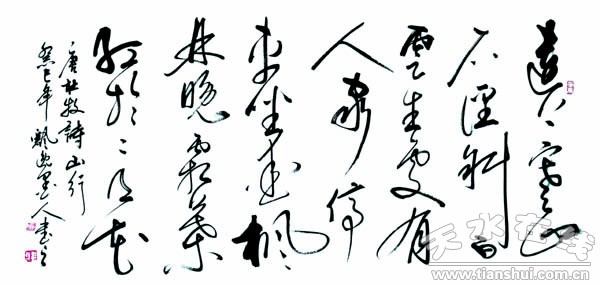 遠上寒山
石徑斜白
雲生處有
人家停
車坐愛楓
林晚霜葉
紅於二月花
唐杜牧詩山行
癸巳年飄逸墨人書之
天水在线
www.tianshui.com.cn